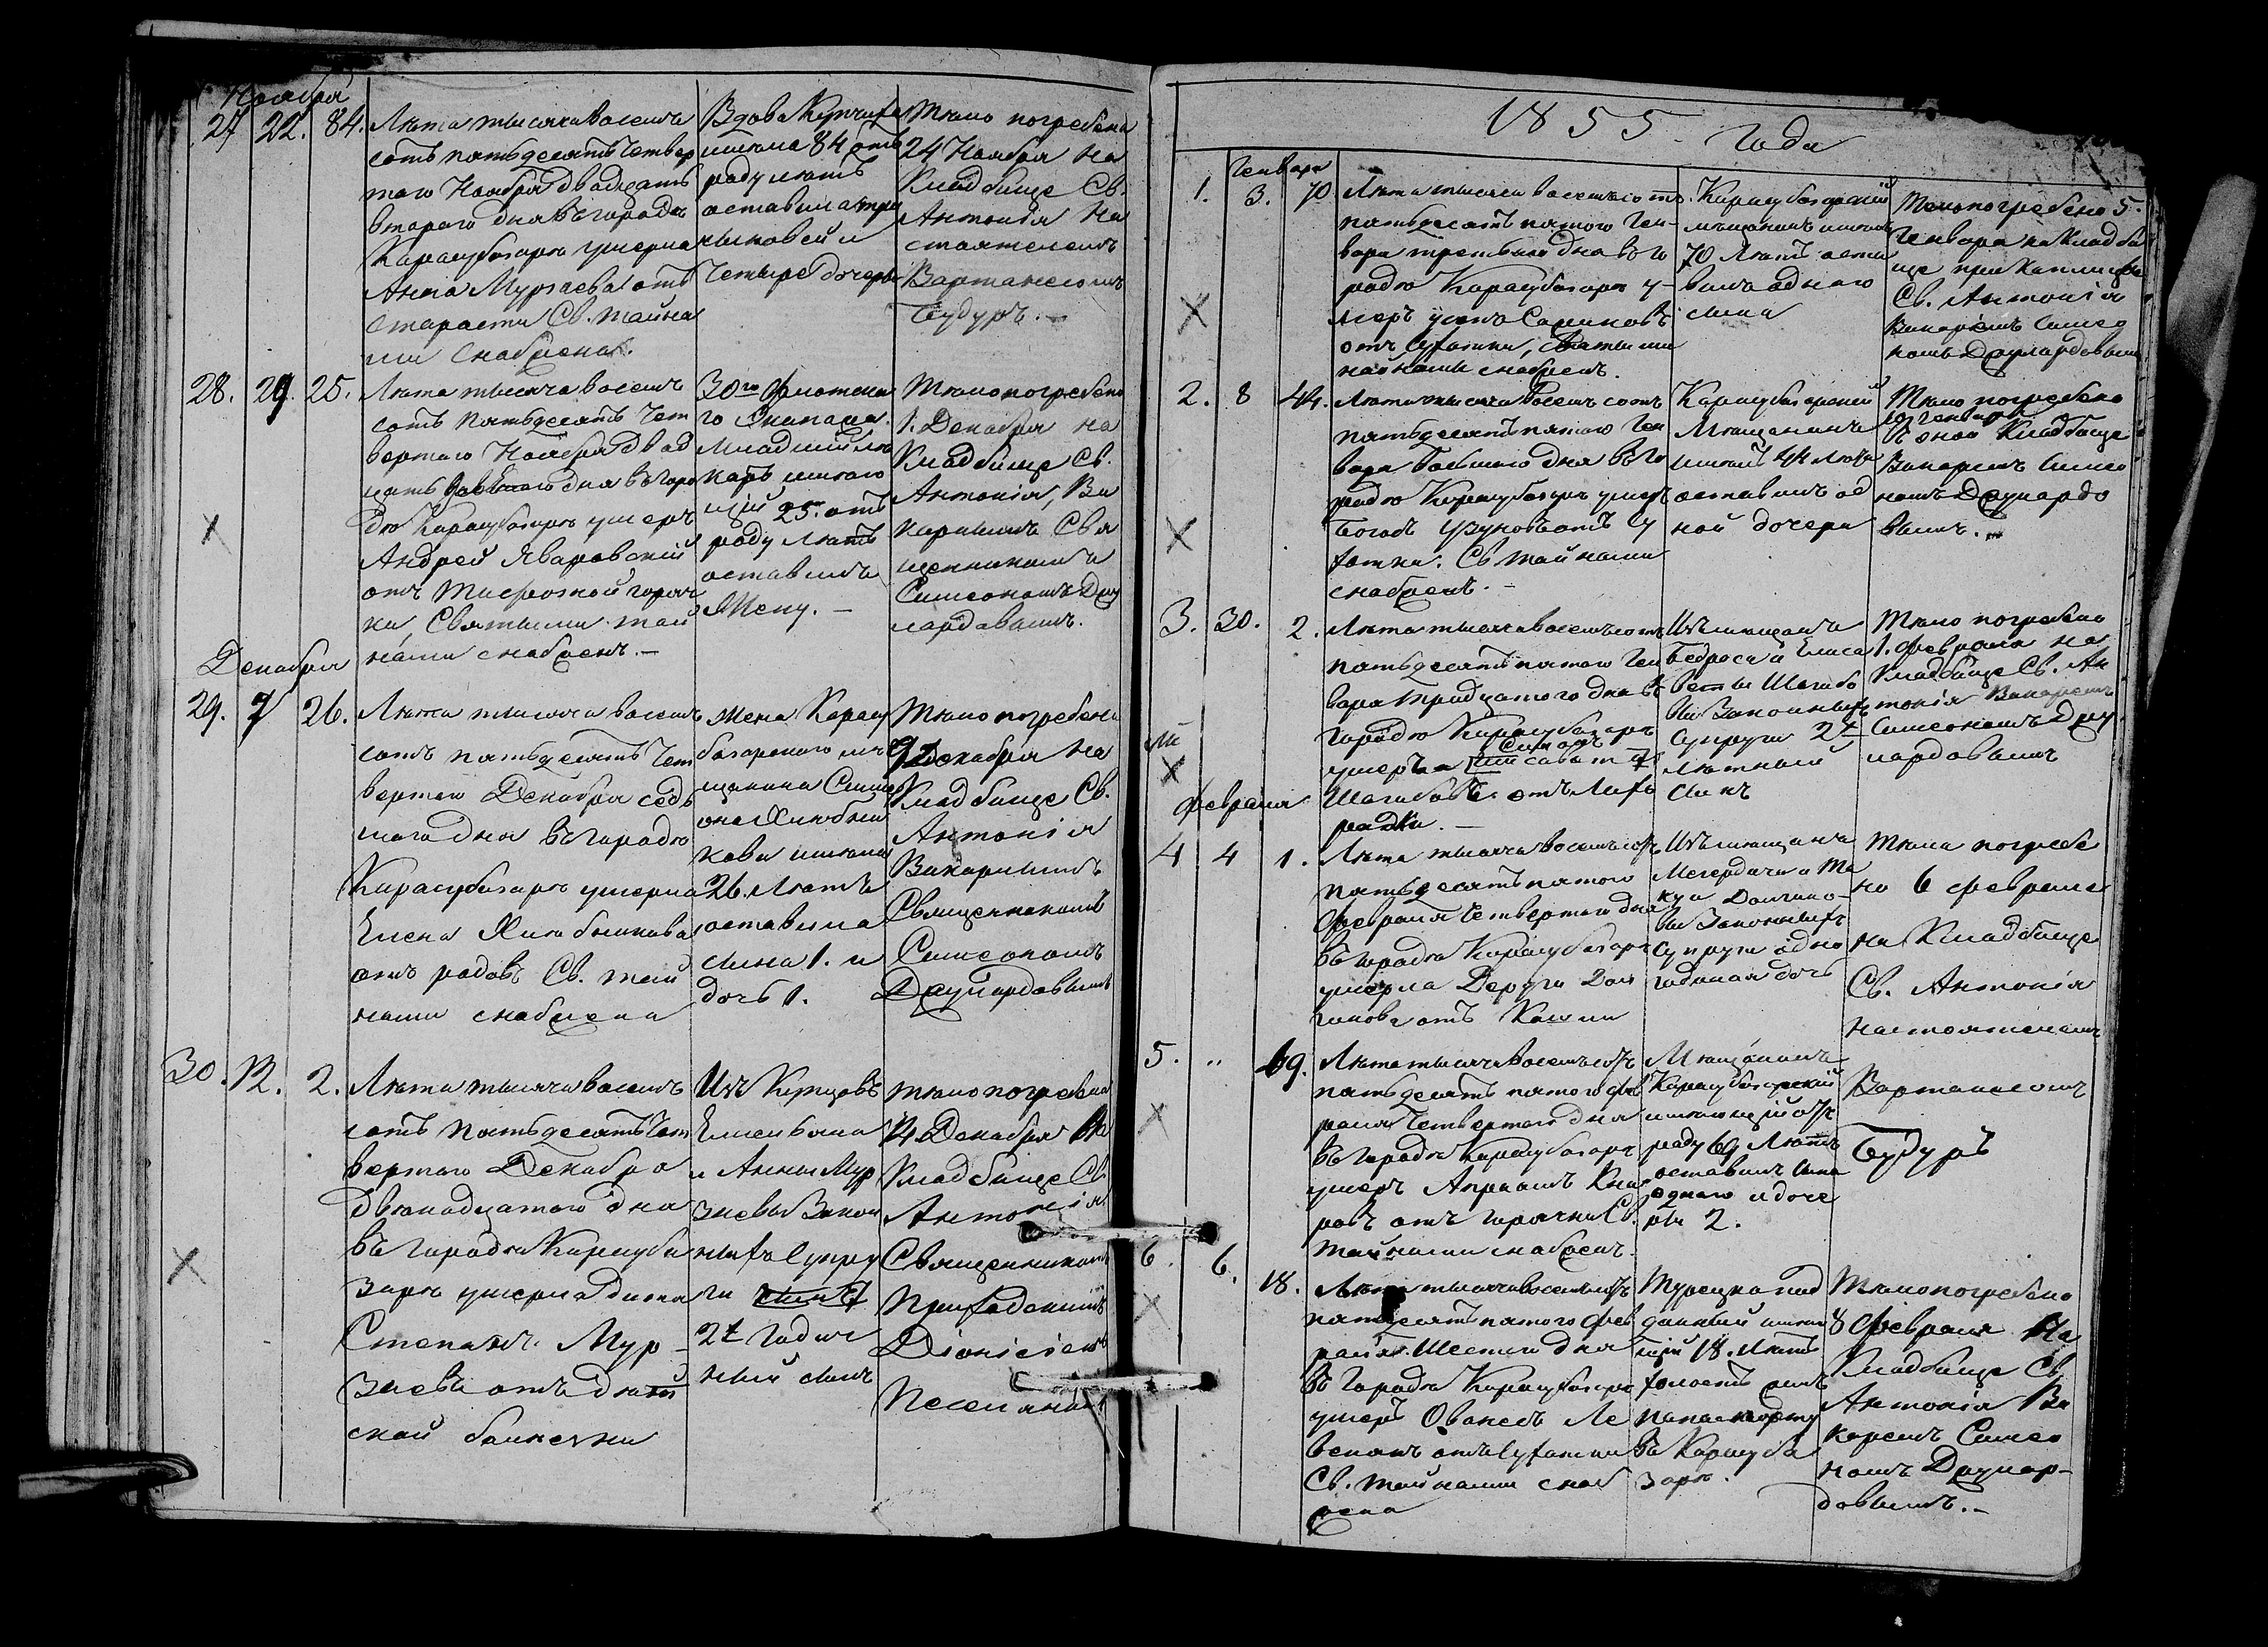 Ноября
27 22. 84. Лѣта тысяча восемь
сотъ пятьдесятъ четвер
таго Ноября двадцать
втораго дня въ городѣ
Карасубазарѣ умерла
Анна Мурзаева отъ
старости Св. тайна
ми снабжена.
Вдова
84 отъ
роду лѣтъ
оставила три
сыновей и
четыре дочерь
Тѣло погребено
24 Ноября на
Кладбище Св.
Антонія На
стоятелемъ
Вартанесомъ
Будуръ.
28. 29. 25. Лѣта тысяча восемь
сотъ пятьдесятъ чет
вертаго Ноября двад
цать девятаго дня въ горо
дѣ Карасубазарѣ умеръ
Андрей Яваровскій
отъ горяч
ки, Святыми тай
нами снабженъ.—
30го Флотска
го Экипажа
Младшій лѣ
карь имѣю
щій 25. отъ
роду лѣтъ
оставилъ
Жену.—
Тѣло погребено
1. Декабря на
Кладбище Св.
Антонія, Ви
каріемъ Свя
щенникомъ
Симеономъ
Декабря
29. 7 26. Лѣта тысяча восемь
сотъ пятьдесятъ чет
вертаго Декабря седь
маго дня въ городѣ
Карасубазарѣ умерла
Елена
отъ родовъ Св. тай
нами снабжена
Жена Карасу
базарскаго мѣ
щанина Симе
она
кова имѣла
26. лѣтъ
оставила
сына 1. и
дочь 1.
Тѣло погребено
9 Декабря на
Кладбище Св.
Антонія
Викаріемъ
Священникомъ
Симеономъ
30. 12. 2. Лѣта тысяча восемь
сотъ пятьдесятъ чет
вертаго Декабря
двѣнадцатаго дня
въ городѣ Карасуба
зарѣ умерла дитя
Степанъ Мур-
заевъ отъ дѣт
ской болѣзни
Изъ Купцовъ
и Анны Мур
заевы Закон
ныхъ Супру
ги
2х Годич
ный сынъ
тѣло погребена
14 Декабря На
Кладбище Св.
Антонія
Священникомъ
Приходскимъ
Діонисіемъ
1855 года
Генваря
1. 3. 70. Лѣта тысяча восемьсотъ
пятьдесятъ пятаго Ген-
варя третьяго дня въ го
родѣ Карасубазарѣ у-
меръ
отъ Чахотки, Святыми
тайнами снабженъ.
Карасубазарскій
мѣщанинъ имѣлъ
70 лѣтъ оста
вилъ аднаго
сына
Тѣло погребено 5.
Генваря на Кладби
ще при Каплицѣ
Св. Антонія
Викаріемъ Симео
номъ
2. 8 44. Лѣта тысяча восемь сотъ
пятьдесятъ пятаго Ген
варя Восьмаго дня въ го
родѣ Карасубазарѣ умеръ
Богосъ Узуновъ отъ Ча
хотки. Св. тайнами
снабженъ.—
Карасубазарскій
Мѣщанинъ
имѣлъ 44 лѣтъ
оставилъ од
ной дочери
Тѣло погребено
10 генваря
Кладбище
Викаріемъ Симео
номъ
вымъ.
3. 30. 2. Лѣта тысяча восемьсотъ
пятьдесятъ пятаго Ген
варя тридцатаго дня въ
городѣ Карасубазарѣ
умеръ
отъ Лихо
радки.—
Изъ мѣщанъ
Бедроса и Елиса
веты
Законныхъ
супруги 2х
лѣтный
сынъ
Тѣло погребено
1. февраля на
Кладбище Св. Ан
тонія Викаріемъ
Симеономъ
Февраля
4 4 1. Лѣта тысяча восемьсотъ
пятьдесятъ пятаго
Февраля Четвертаго дня
въ городѣ Карасубазарѣ
умерла
отъ Кашли
Изъ мѣщанъ
Законныхъ
Супруги одно
годичная дочь
Тѣло погребе
но 6 февраля
на Кладбище
Св. Антонія
настоятелемъ
Вартанесомъ
Будуръ
5. „ 69. Лѣта тысяча восемьсотъ
пятьдесятъ пятаго Фев
раля Четвертаго дня
въ городѣ Карасубазарѣ
умеръ
отъ горячки Св.
тайнами снабженъ.
Мѣщанинъ
Карасубазарскій
имѣющій отъ
роду 69 лѣтъ
оставилъ сына
одного и доче
ри 2.
6. 6. 18. Лѣта тысяча восемьсотъ
пятьдесятъ пятаго Фев
раля Шестаго дня
въ Городѣ Карасубазарѣ
умеръ Ованесъ Ле
отъ Чахотки
Св. тайнами снаб
жена
Турецко под
данный имѣю
щій 18. лѣтъ
холостъ
въ Карасуба
зарѣ.
Тѣло погребено
8 Февраля На
Кладбище Св.
Антонія Ви
каріемъ Симео
номъ
довымъ.—